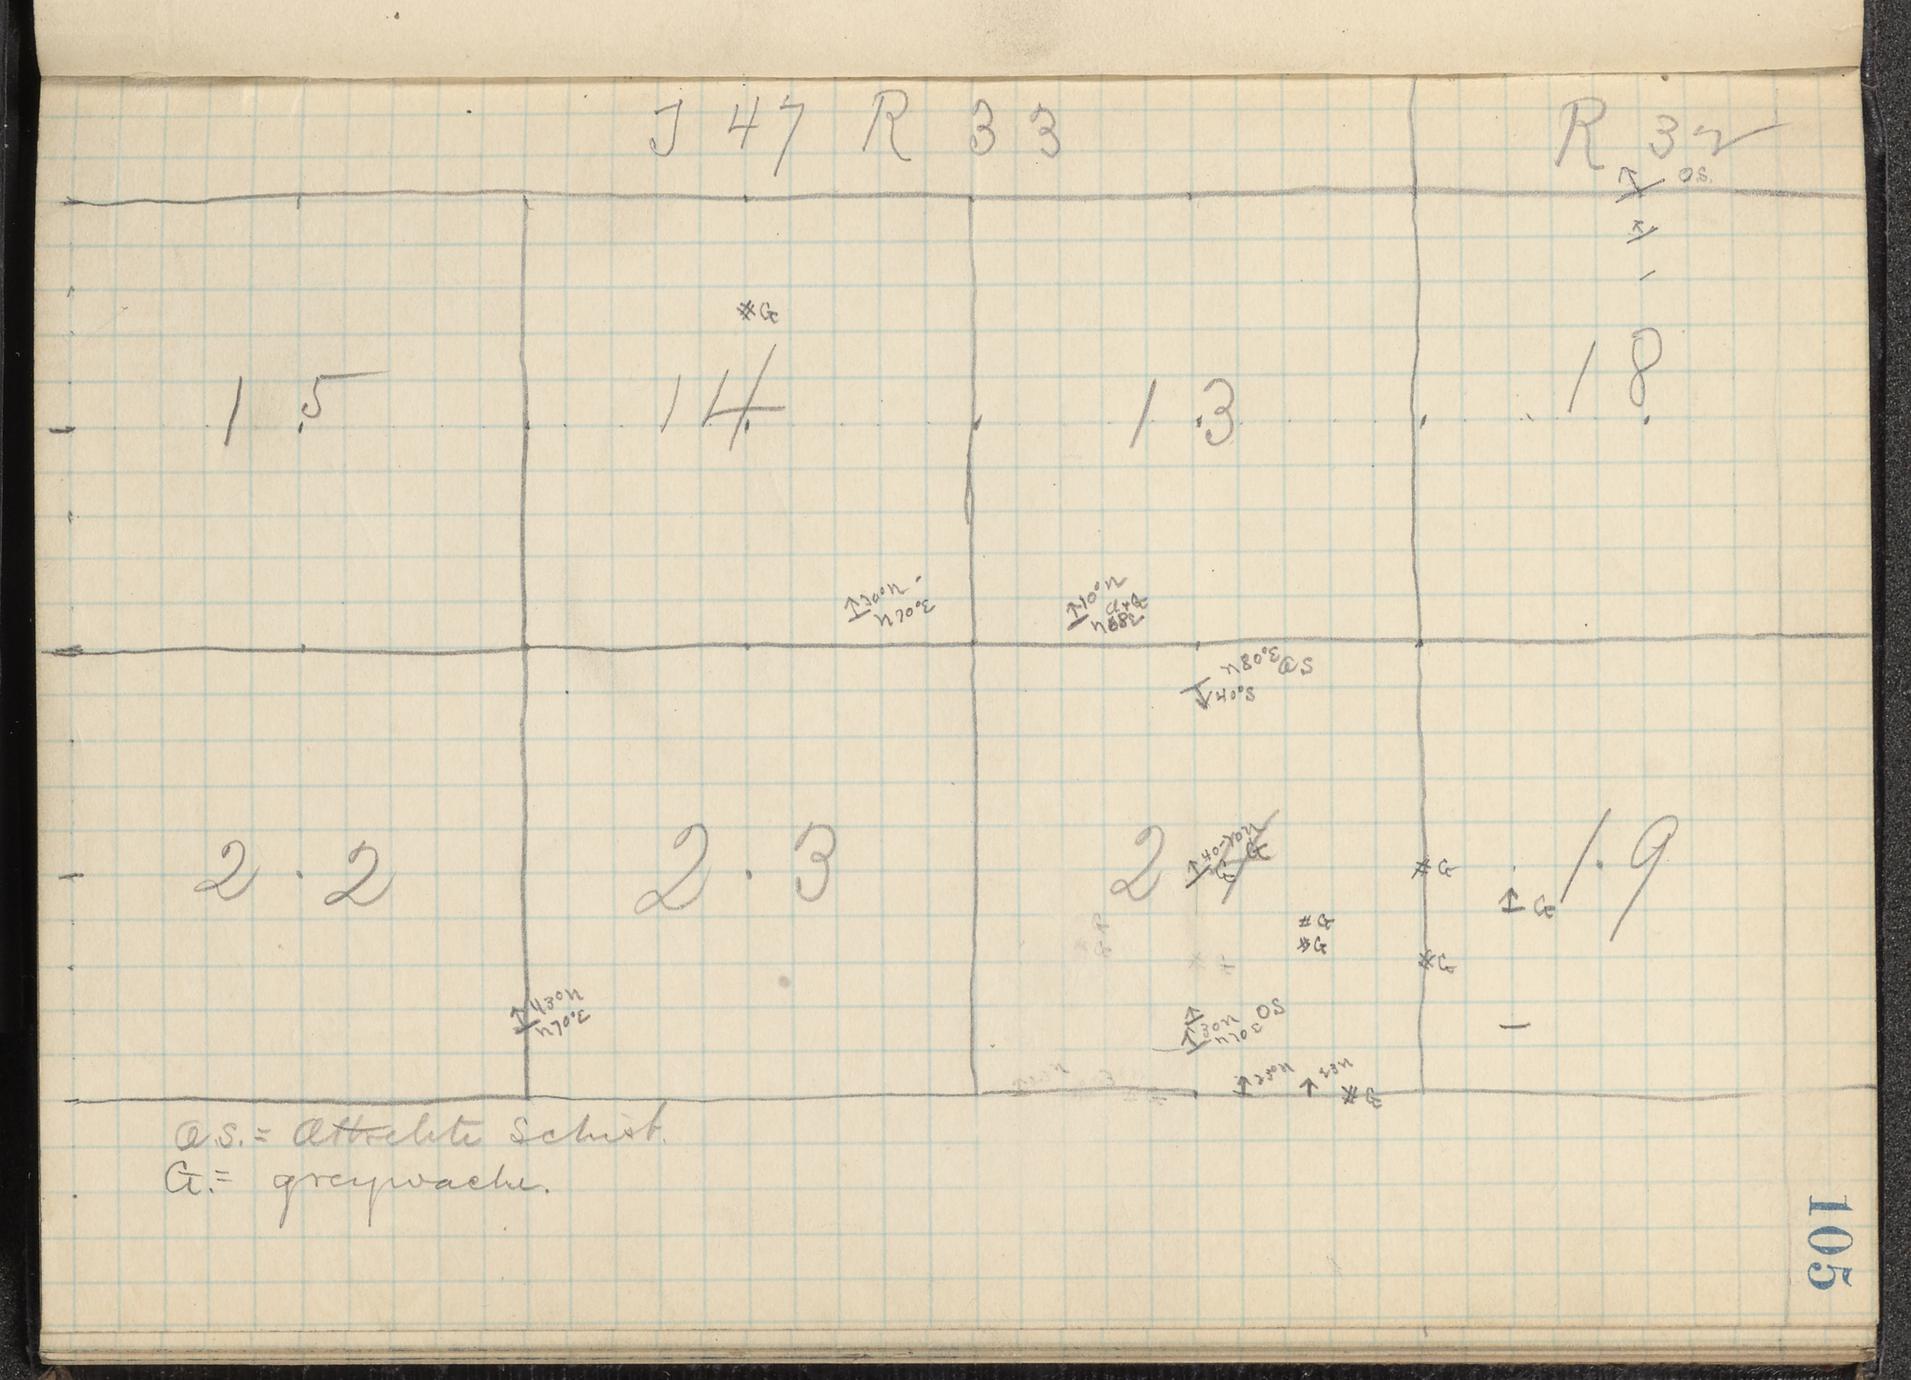 T 47 R 33 R 32
O.S.
#G
15 14 13 18
30°N
N70°E
10°N
N80°E
N80°E OS
40°S
22 23 24 19
40-70N
G G
#G
G
#G
#G
#G
43°N
N70°E
30N
N70E OS
25°N
#G
O.S. = Ottrelite Schist.
G. = greywacke.
105